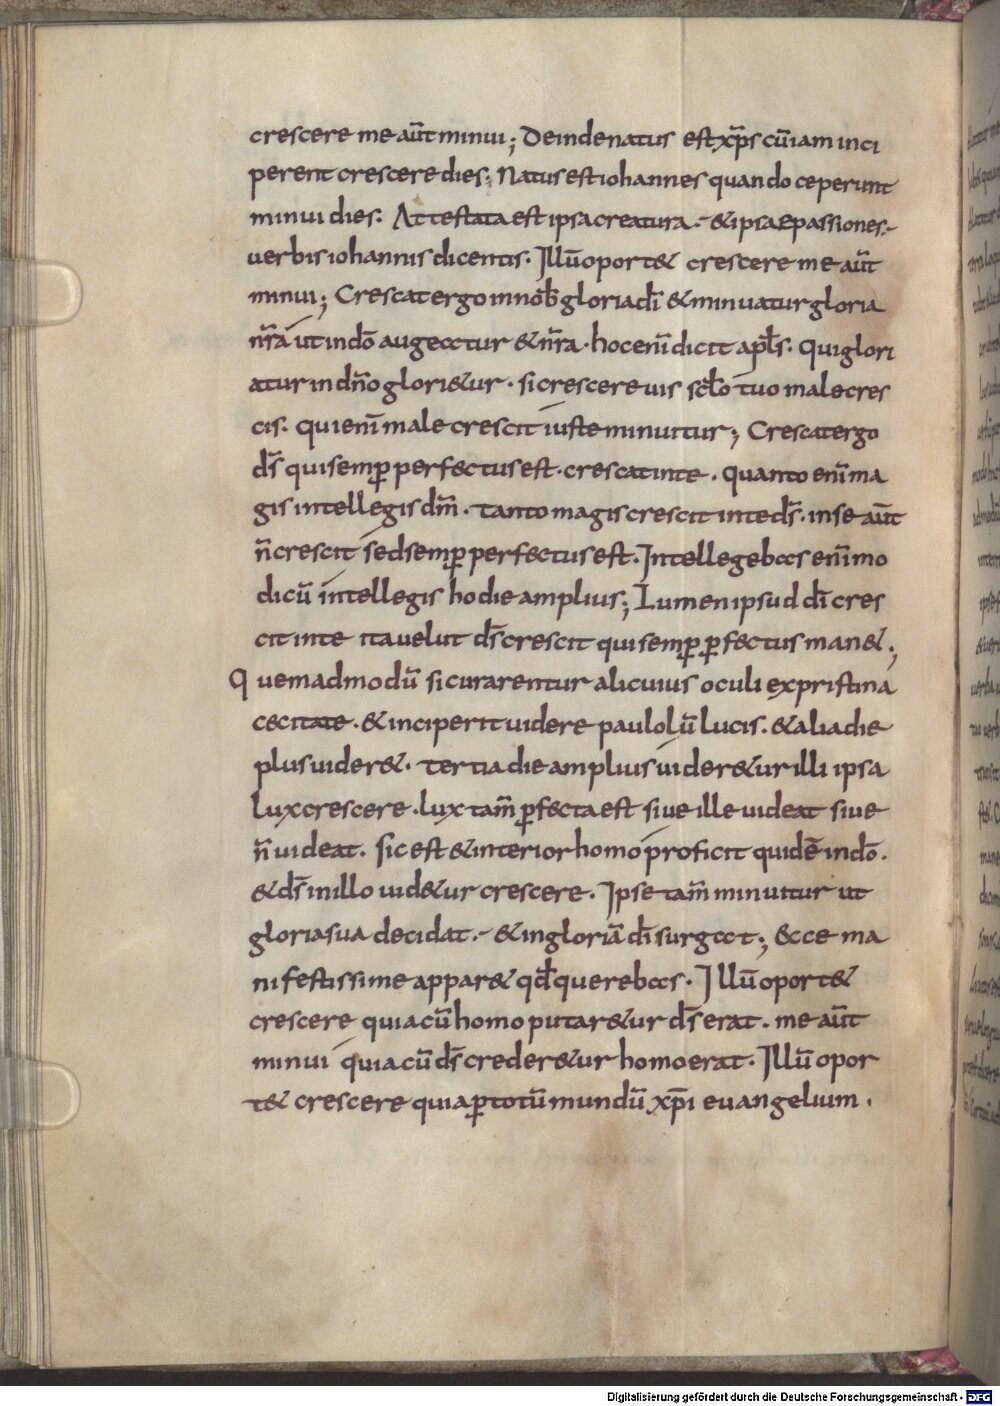 crescere me aūt minui; Deinde natus est xp̄s cū iam inci
perent crescere dies. Natus est iohannes quando ceperunt
minui dies. Attestata est ipsa creatura. & ipsae passiones.
uerbis iohannis dicentis. Illū oport& crescere me aūt
minui; Crescat ergo in nob̄ gloria dī & minuatur gloria
nr̄a ut in dō augeatur & nr̄a. hoc enī dicit apl̄s. Qui glori
atur in dn̄o glori&ur. si crescere uis sc̄lo tuo male cres
cis. qui enī male crescit iuste minuitur; Crescat ergo
ds̄ qui semp̄ perfectus est. crescat in te. Quanto enī ma
gis intellegis dm̄. tanto magis crescit in te ds̄. in se aūt
n̄ crescit sed semp̄ perfectus est. Intellegebas enī mo
dicū intellegis hodie amplius; Lumen ipsud dī cres
cit in te ita uelut ds̄ crescit qui semp̄ p̄fectus man&;
Quemadmodū si curarentur alicuius oculi ex pristina
cecitate. & inciperit uidere paulolū lucis. & alia die
plus uider&. tertia die amplius uider&ur illi ipsa
lux crescere. lux tam̄ p̄fecta est siue ille uideat siue
n̄ uideat. sic est & interior homo proficit quidē in dō.
& ds̄ in illo uid&ur crescere. Ipse tam̄ minuitur ut
gloria sua decidat. & in gloriā dī surgat; Ecce ma
nifestissime appar& qd̄ querebas. Illū oport&
crescere quia cū homo putar&ur ds̄ erat. me aūt
minui quia cū ds̄ creder&ur homo erat. Illū opor
t& crescere quia p̄ totū mundū xp̄i euangelium.
Digitalisierung gefördert durch die Deutsche Forschungsgemeinschaft - DFG